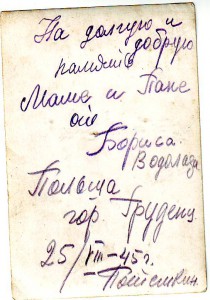 На долгую и
добрую
память
Маме и Папе
от
Бориса
Водолада
Польша
гор. Груденц
25/VIII-45 г.